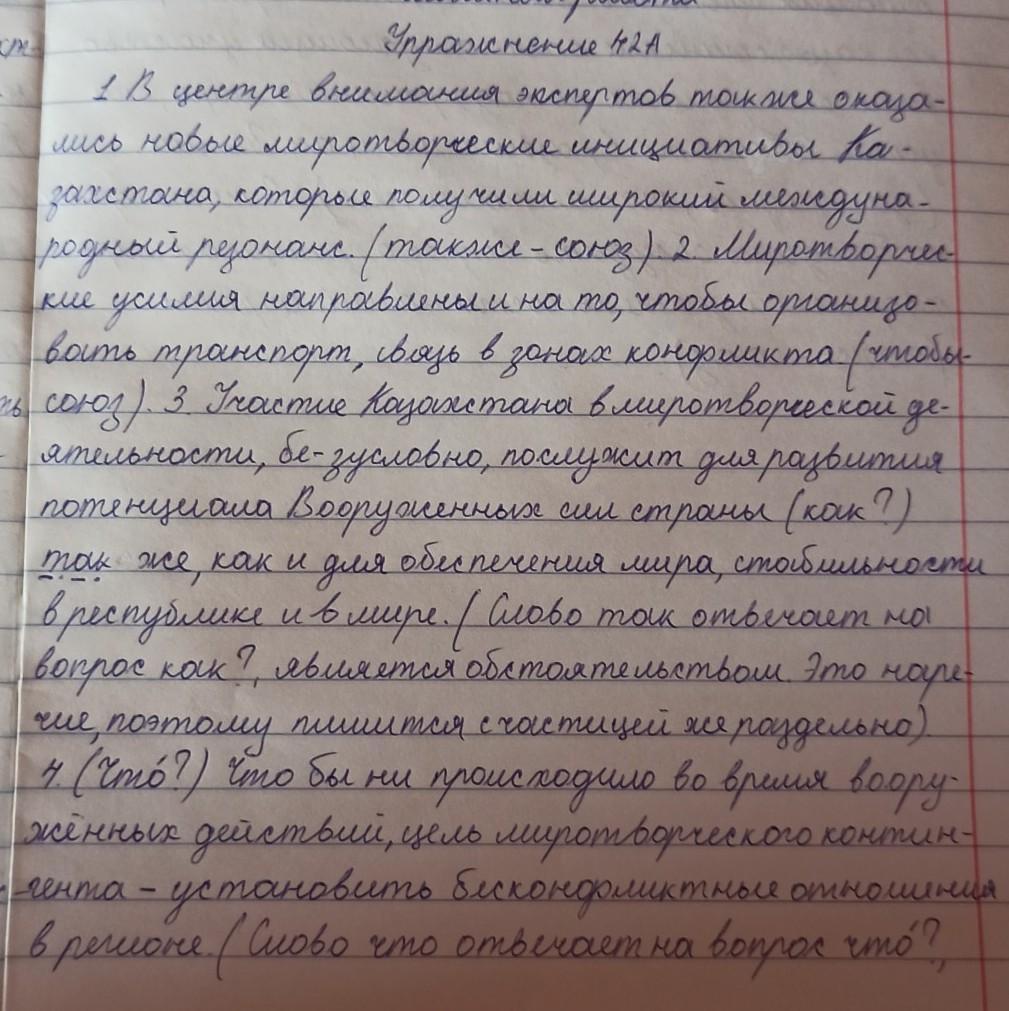 Упражнение 42А
1 В центре внимания экспертов также оказа-
лись новые миротворческие инициативы Ка-
захстана, которые получили широкий междуна-
родный резонанс. (также - союз). 2. Миротворчес-
кие усилия направлены и на то, чтобы организо-
вать транспорт, связь в зонах конфликта (чтобы-
союз). 3. Участие Казахстана в миротворческой де-
ятельности, бе-зусловно, послужит для развития
потенциала Вооруженных сил страны (как?)
так же, как и для обеспечения мира, стабильности
в республике и в мире. (Слово так отвечает на
вопрос как?, является обстоятельством. Это наре-
чие, поэтому пишится с частицей же раздельно).
4. (Что́?) Что бы ни происходило во время воору-
жённых действий, цель миротворческого контин-
гента – установить бесконфликтные отношения
в регионе. (Слово что отвечает на вопрос что́?,